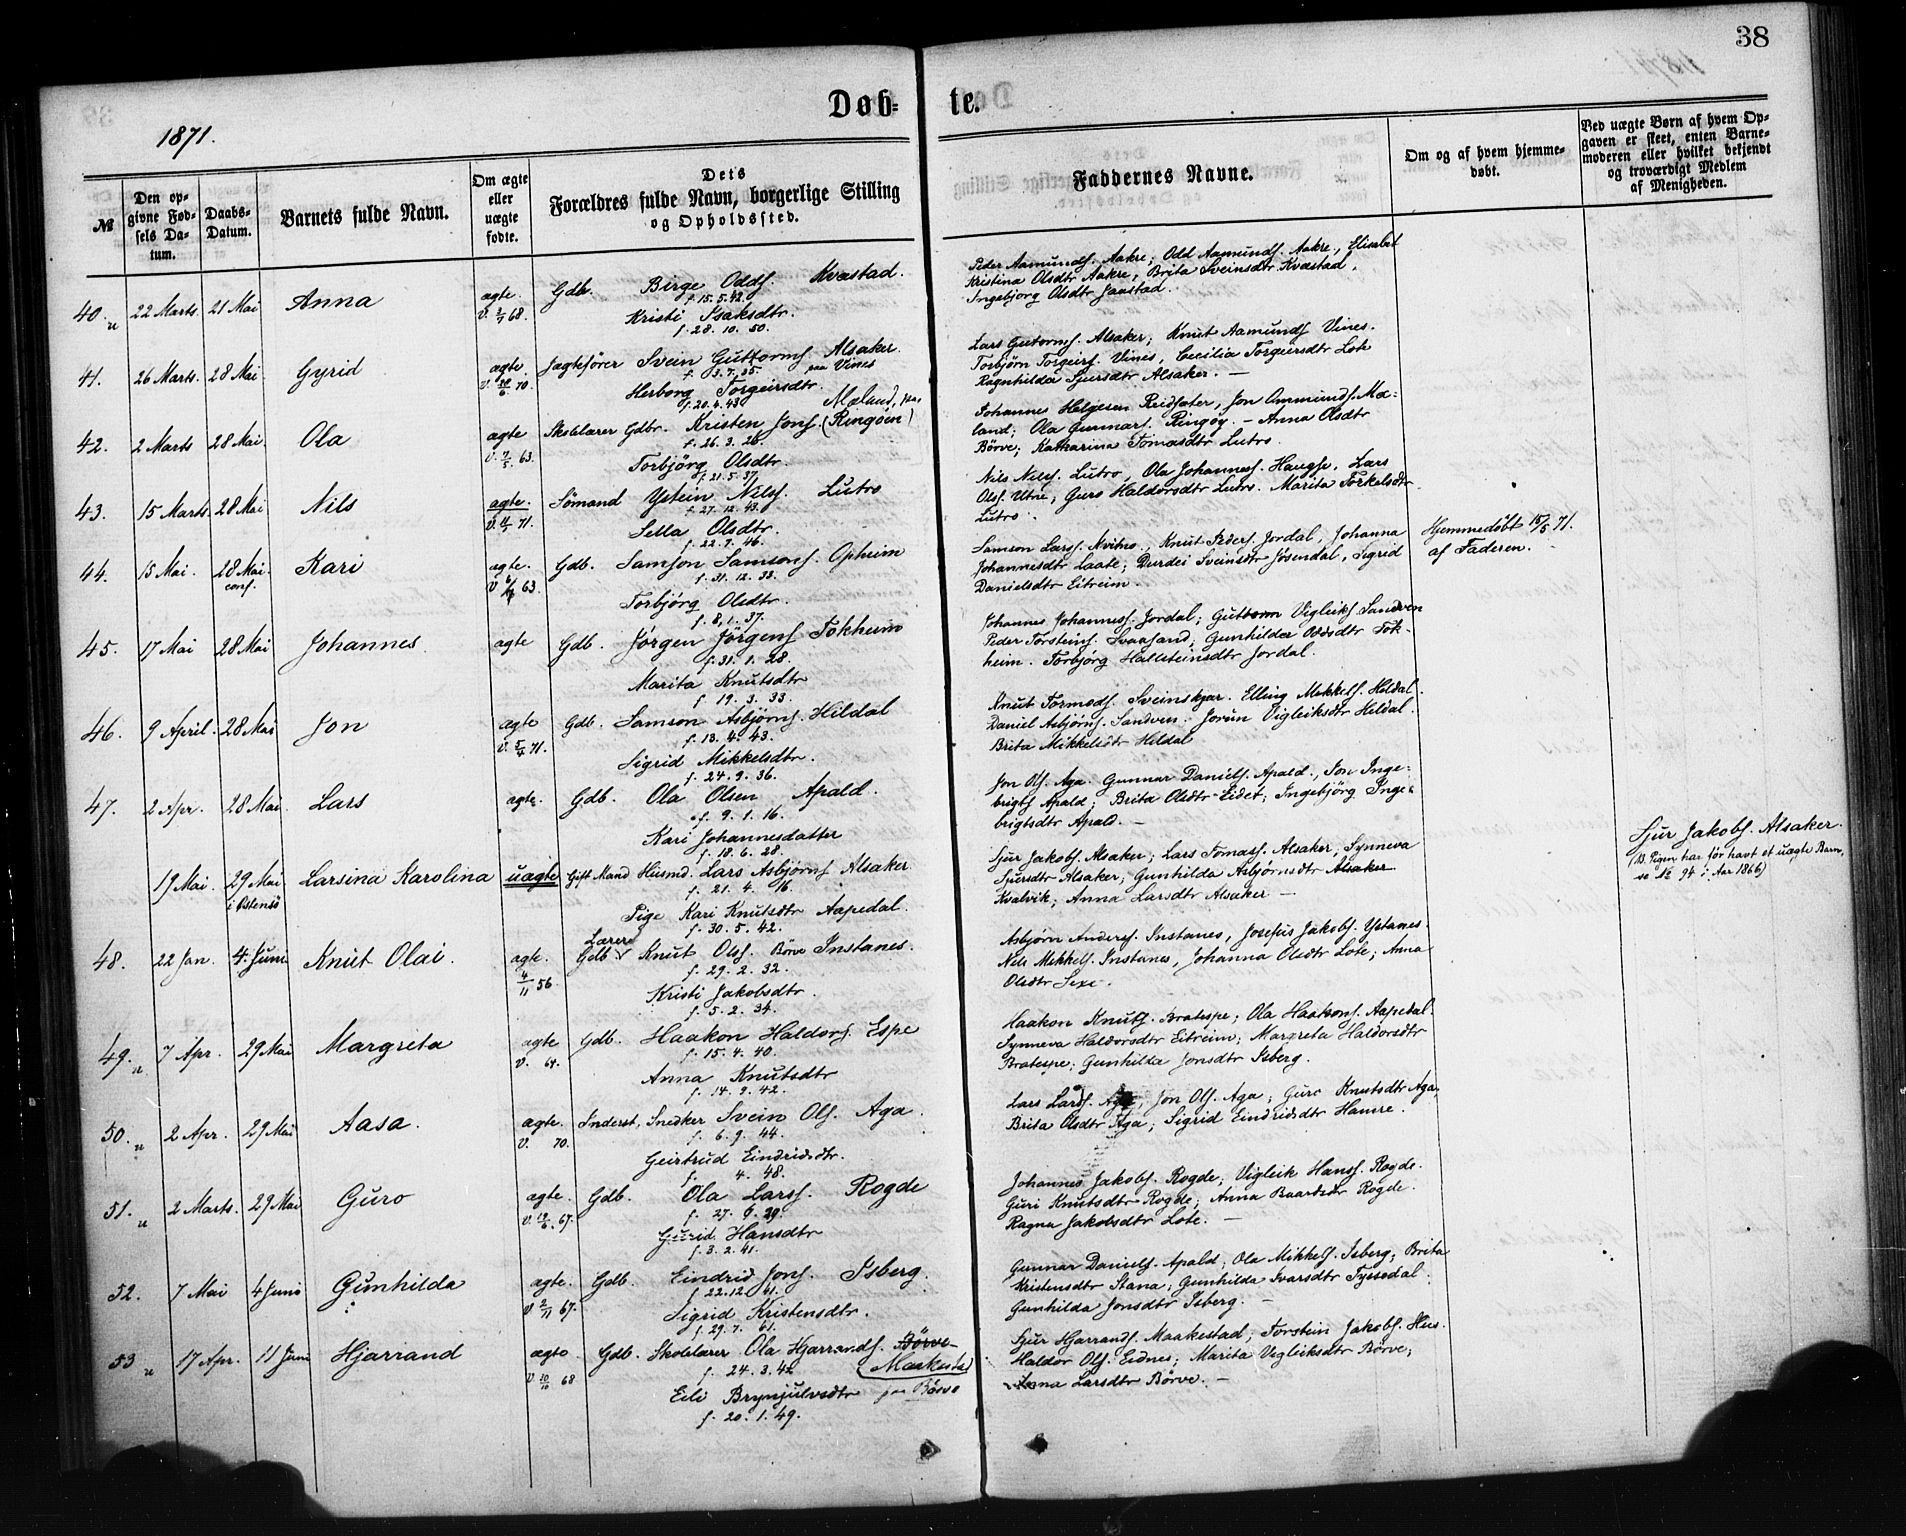 38
Døb-
te.
1871.
№
Den op-
givne Fød-
sels Da-
tum.
Daabs-
Datum.
Barnets fulde Navn.
Om ægte
eller
uægte
fødte.
Dets
Forældres fulde Navn, borgerlige Stilling
og Opholdssted.
Faddernes Navne.
Om og af hvem hjemme-
døbt.
Ved uægte Børn af hvem Op-
gaven er skeet, enten Barne-
moderen eller hvilket bekjendt
og troværdigt Medlem
af Menigheden.
40. 22 Marts. 21 Mai Anna ægte. Gdb. Birge Odds. Kvæstad.
f. 15.5.42.
Kristi Isaksdtr.
f. 28. 10. 50.
Peder Aamunds. Aakre; Odd Aamunds. Aakre, Elisabet
Kristina Olsdtr Aakre, Brita Sveinsdtr Kvæstad,
Ingebjorg Olsdtr Jaastad.
41. 26 Marts. 28 Mai Gyrid ægte Jægtefører Svein Guttorms. Alsaker.
paa Vines
Herborg Torgeirsdtr.
f. 20.4.43
Lars Guttorms. Alsaker; Knut Aamunds Vines.
Torbjørn Torgeirs. Vines, Cecilia Torgeirsdtr Lote
Ragnhilda Sjursdtr Alsaker. —
42. 2 Marts 28 Mai. Ola ægte Skolelærer Gdbr. Kristen Jons. (Ringøen)
Mæland,
f. 26. 3. 26.
V. 7/5. 63.
Torbjörg Olsdtr.
f. 21.5.37
Johannes Helgesen Reidsæter, Jon Ommunds. Mæ-
land; Ola Gunnars. Ringøy. — Anna Olsdtr
Börve; Katharina Tomasdtr Lutro.
43. 15 Marts. 28 Mai Nils ægte. Sömand Ystein Nils. Lutro
f. 27. 12. 43.
Sella Olsdtr.
f. 22. 7. 46.
Nils Nils. Lutro, Ola Johannes. Haugse, Lars
Ols. Utne; Guro Haldorsdtr Lutro. Marita Torkelsdtr
Lutro.
44. 15 Mai. 28 Mai. Kari ægte. Gdb. Samson Samsons. Opheim
conf.
f. 31. 12. 33.
Torbjörg Olsdtr.
f. 8. 1. 37.
Samson Larss. Kvitno, Knut Peders. Jordal, Johanna
Johannesdtr Laate; Durdei Sveinsdtr Jösendal, Sigrid
Danielsdtr Eitreim.
Hjemmedöbt 15/5 71.
af Faderen.
45. 17 Mai 28 Mai Johannes. ægte Gdb. Jörgen Jörgens Tokheim
f. 31. 1. 28.
Marita Knutsdtr
f 19. 3. 33.
Johannes Johanness. Jordal; Guttorm Vigleiks Sandven
Peder Torsteins. Svaasand; Gunhilda Oddsdtr Tok-
heim. Torbjörg Hallsteinsdtr Jordal.
46. 9 April. 28 Mai Jon ægte Gdb. Samson Asbjörns. Hildal
V. 5/4 71.
f. 13. 4. 43.
Sigrid Mikkelsdtr.
f. 24. 9. 36.
Knut Tormods. Sveinskjar. Elling Mikkels. Hildal.
Daniel Asbjörns. Sandven. Jorun Vigleiksdtr Hildal.
Brita Mikkelsdtr Hildal
47. 2 Apr. 28 Mai Lars ægte. Gdb. Ola Olsen Apald.
f. 9. 1. 16.
Kari Johannesdatter
f. 18. 6. 28.
Jon Ols. Aga. Gunnar Daniels. Apald., Jon Inge-
brigts Apald; Brita Olsdtr Eidet; Ingebjörg Inge-
brigtsdtr Apald. —
19 Mai. 29 Mai Larsina Karolina uægte Gift Mand Husmd. Lars Asbjörns Alsaker
i Østensö
f. 21. 4. 16.
Pige Kari Knutsdtr Aapedal.
f. 30. 5. 42.
Sjur Jakobs. Alsaker; Lars Tomass. Alsaker, Synneva
Sjursdtr Alsaker; Gunhilda Asbjörnsdtr Alsaker
Kvalvik; Anna Larsdtr Alsaker —
Sjur Jakobs. Alsaker.
(NB. Pigen har før havt et uægte Barn,
se № 94 i Aar 1866)
48. 22 Jan. 4. Juni Knut Olai. ægte. Gdb Knut Ols. Börve Instanes.
Lærer
4/11 56
f. 29. 2. 32.
Kristi Jakobsdtr.
f. 5. 2. 34.
Asbjörn Anders. Instanes, Josefus Jakobs. Ystanes.
Nils Mikkels. Instanes, Johanna Olsdtr Lote; Anna
Olsdtr Sexe.
49. 7 Apr. 29 Mai Margreta ægte Gdb. Haakon Haldors. Espe
V. 64.
f. 15. 4. 40.
Anna Knutsdtr
f. 14. 9. 42.
Haakon Knuts. Bratespe; Ola Haakons. Aapedal.
Synneva Haldorsdtr Eitreim; Margreta Haldorsdtr
Bratespe; Gunhilda Jonsdtr Isberg.
50. 2 Apr. 29 Mai Aasa. ægte. Inderst, Snedker Svein Ols. Aga.
V. 70.
f. 6. 9. 44.
Geirtrud Eindridsdtr.
f. 4. 48.
Lars Lars. Aga, Jon Ols. Aga; Guro Knutsdtr Aga.
Brita Olsdtr Aga; Sigrid Eindridsdtr Hamre.
51. 2 Marts. 29 Mai Guro ægte. Gdb. Ola Larss. Rogde
f. 27. 6. 29.
Gurid Hansdtr
f. 3. 2. 41.
Johannes Jakobs. Rogde; Vigleik Hanss. Rogde.
Guri Knutsdtr Rogde; Anna Baardsdtr Rogde.
Ragna Jakobsdtr Lote. —
52. 7 Mai 4 Juni Gunhilda ægte. Gdb. Eindrid Jons. Isberg.
V 2/11 67.
f. 22.12 61.
Sigrid Kristensdtr.
f. 29. 7. 61.
Gunnar Daniels. Apald; Ola Mikkels. Isberg; Brita
Kristensdtr Stana; Gunhilda Ivarsdtr Tyssedal.
Gunhilda Jonsdtr Isberg. —
53 17 Apr. 11 Juni Hjarrand ægte Gdb. Skolelærer Ola Hjarrands. Börve
Maakestad
V 10/10 68
f. 24. 3. 42
Eili Brynjulvsdtr paa Börve
f. 20. 1. 49.
Sjur Hjarrands. Maakestad; Torstein Jakobs. Hus.
Haldor Ols. Eidnes; Marita Vigleiksdtr Börve;
Anna Larsdtr Börve. —